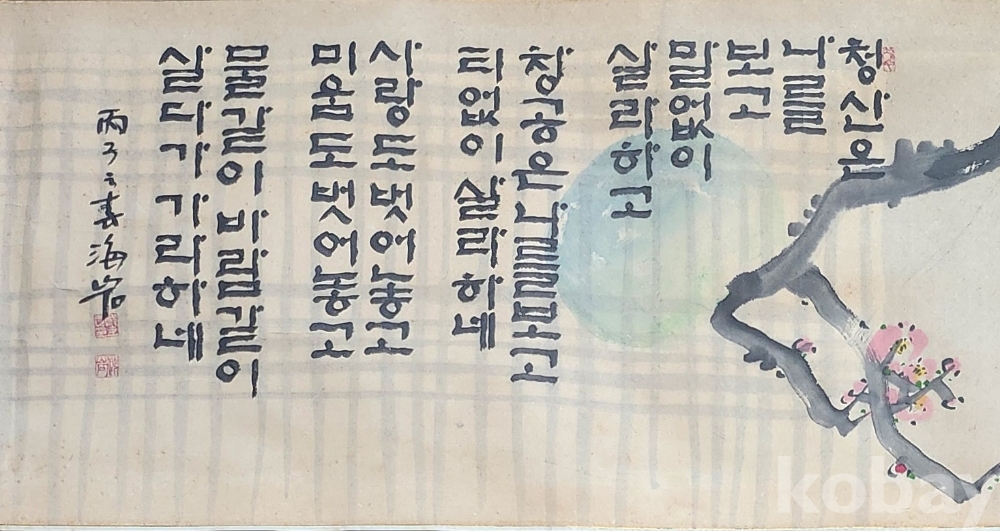 청산은
나를
보고
말없이
살라하고
창공은 나를보고
티없이 살라하네
사랑도 벗어놓고
미움도 벗어놓고
물같이 바람같이
살다가 가라하네
丙子 海岩
kobay